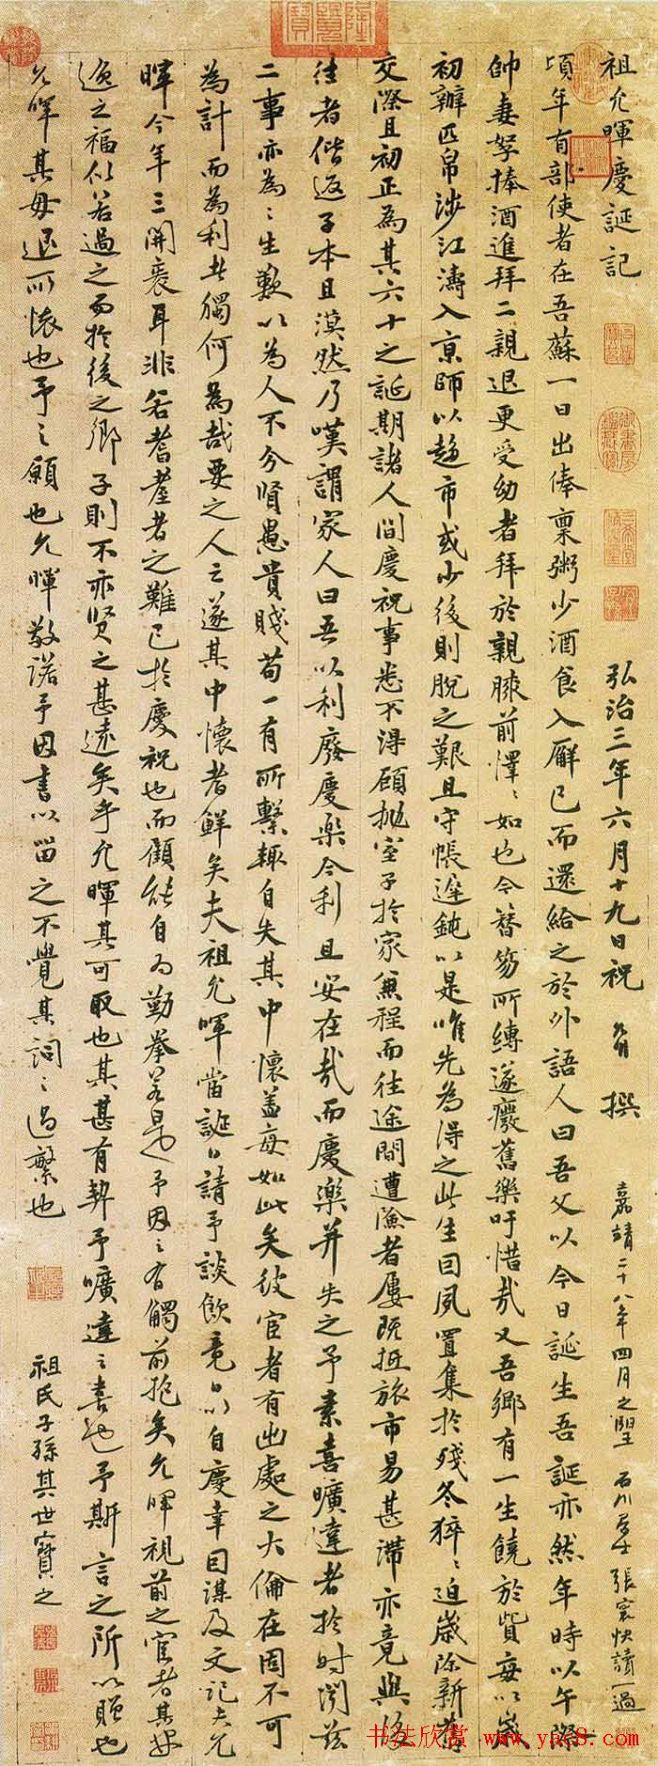 祖允暉慶誕記
弘治三年六月十九日祝 撰
嘉靖二十八年四月之望 石川 張寰快讀一過
頃年有部使者在吾蘇一日出俸稟粥少酒食入廨已而還給之於外語人曰吾父以今日誕生吾誕亦然年時以午際
帥妻孥捧酒進拜二親退更受幼者拜於親膝前懌〻如也今簪笏所縛遂癈舊樂吁惜哉又吾鄉有一生饒於貲每以歲
初辦匹帛涉江濤入京師以趨市或少後則脫之艱且守帳遲鈍以是唯先為得之此生回夙置集於殘冬猝〻迫歲除新舊
交際且初正為其六十之誕期諸人間慶祝事悉不得顧拋室子於家兼程而往途間遭澮者屢既抵旅市易甚滯亦竟與後
往者偕返子本且漠然乃嘆謂家人曰吾以利廢慶樂今利且安在哉而慶樂并失之予素喜曠達者於时閱茲
二事亦為〻生歎以為人不分賢愚貴賤苟一有所繫輒自失其中懷蓋每如此矣彼宦者有出處之大倫在固不可
為計而為利者獨何為哉要之人之遂其中懷者鮮矣夫祖允暉當誕日請予談飲竟日以自慶幸因謀及文記夫允
暉今年三開袠耳非若耆耋者之難已於慶祝也而顧能自為勤拳若是予因之有觸前抱矣允暉視前之宦者其母
逸之福似若過之而於後之鄉子則不亦贤之甚遠矣乎允暉其可取也其甚有契予曠達之喜也予斯言之所以贈也
允暉其毋退所懷也予之願也允暉敬諾予因書以留之不覺其詞之過繁也
祖氏子孫其世寶之
书法欣赏 www.yac8.com